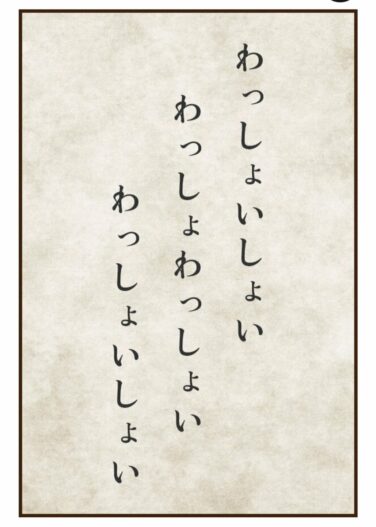 わっしょいしょい
わっしょわっしょい
わっしょいしょい